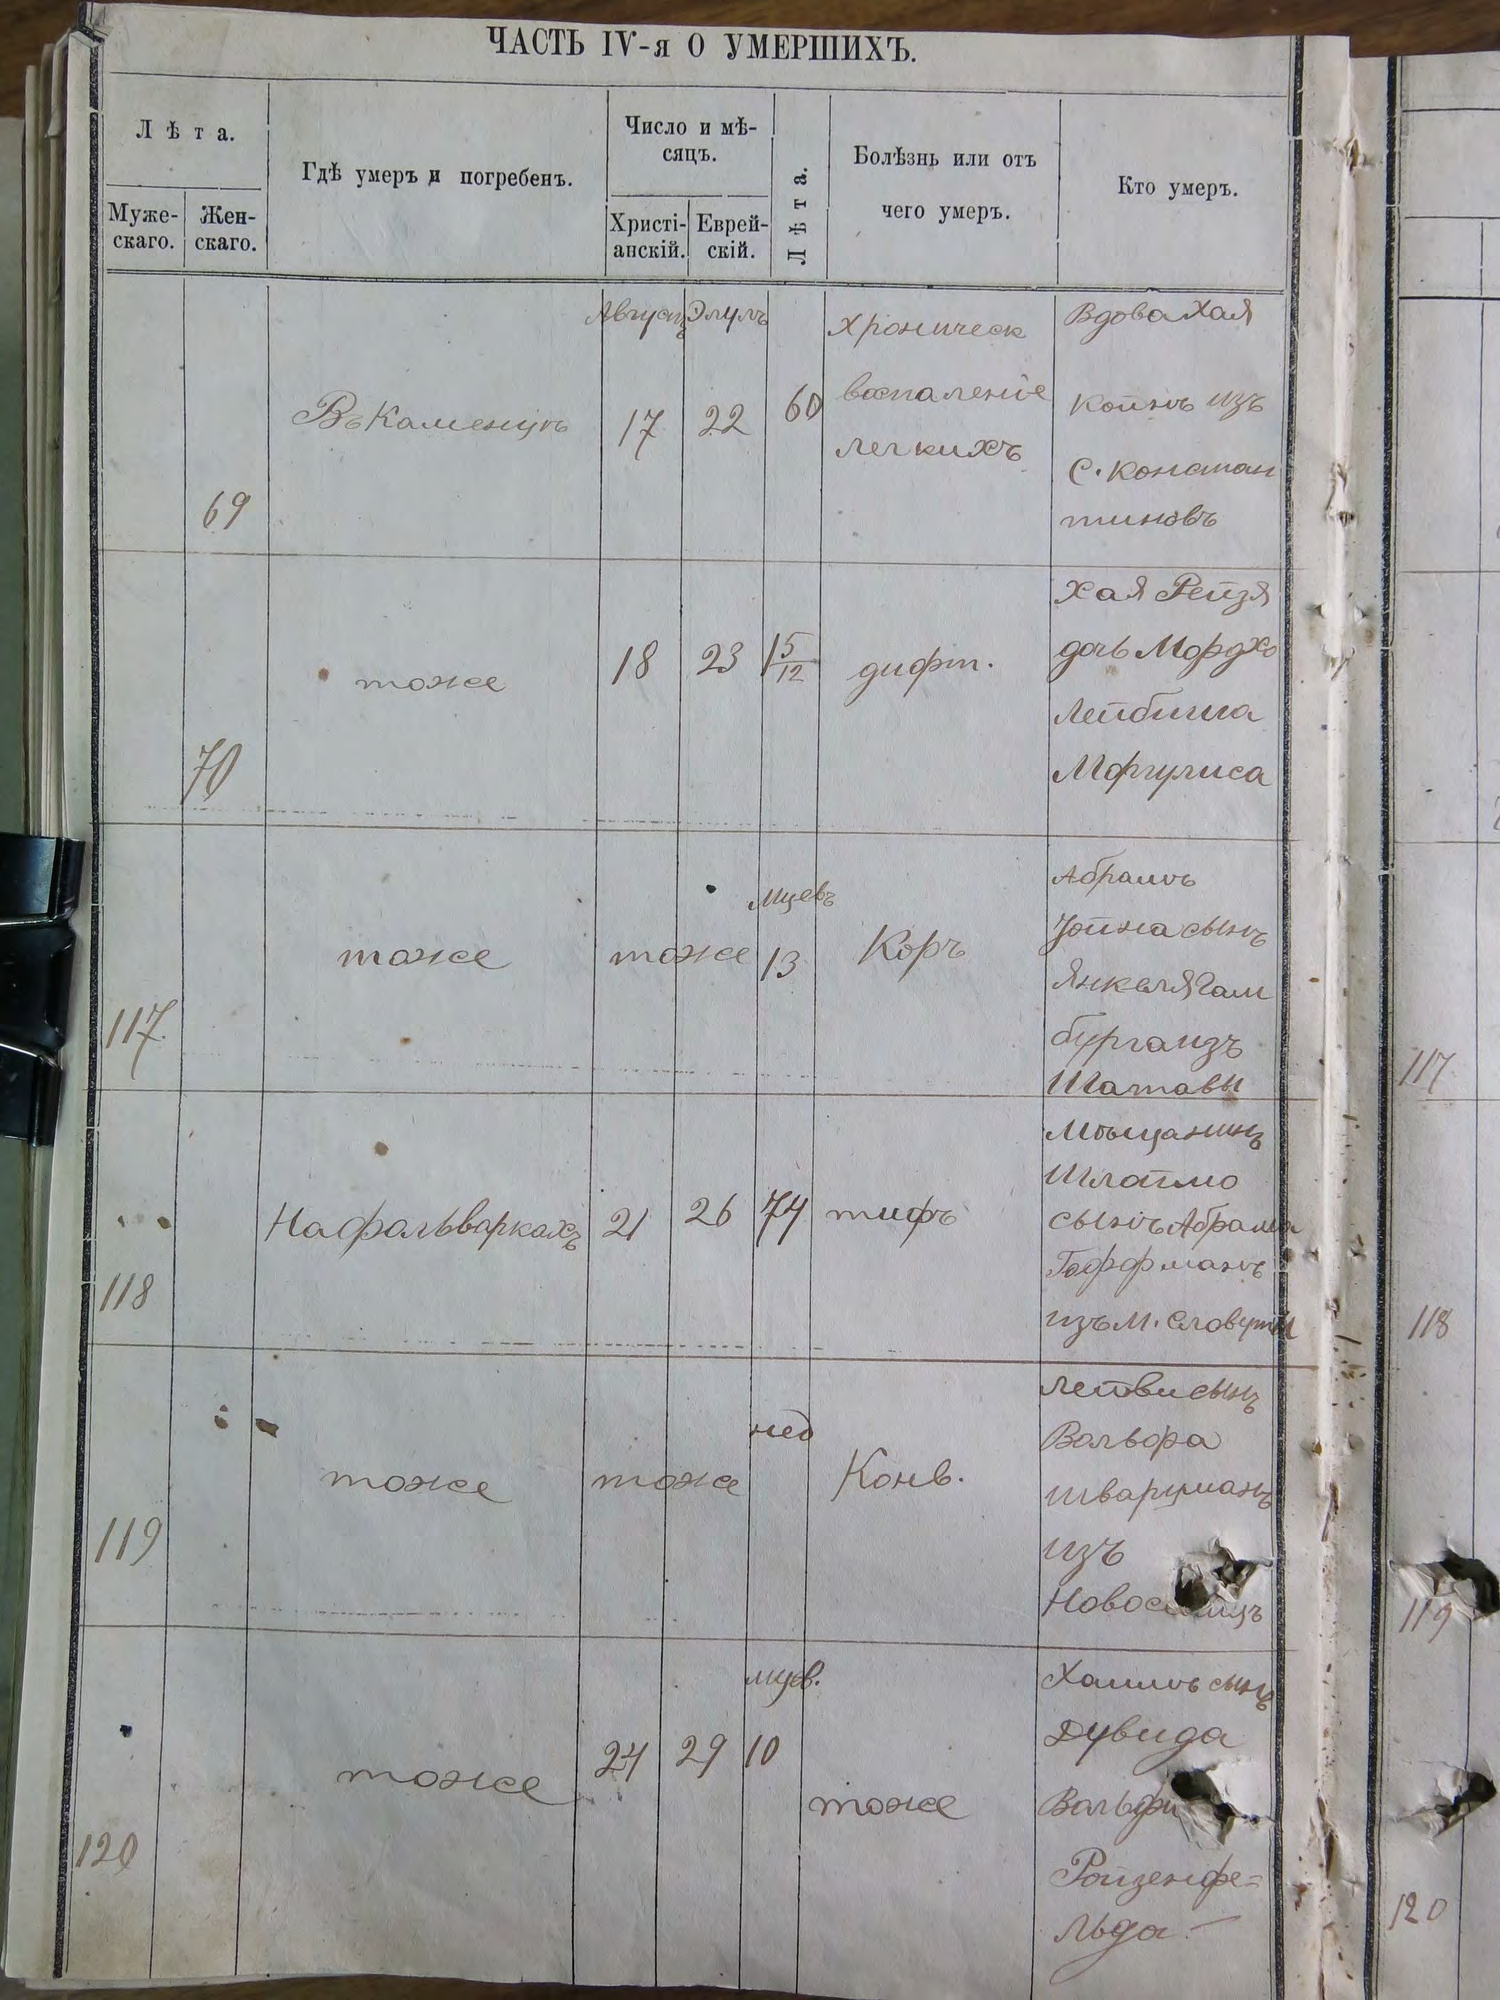 ЧАСТЬ IV-я О УМЕРШИХЪ.
Лѣта.
Муже-
скаго.
Жен-
скаго.
Гдѣ умеръ и погребенъ.
Число и мѣ-
сяцъ.
Христі-
анскій.
Еврей-
скій.
Лѣта.
Болѣзнь или отъ
чего умеръ.
Кто умеръ.
69
Въ Каменцѣ
Августъ Элулъ
17 22
60
Хроническ
воспаленіе
легкихъ
Вдова Хая
Койнъ изъ
с. Констан
тиновъ
70
тоже
18 23
1 5/12
дифт.
Хая Рейзя
дочь Мордхо
Лейбиша
Моргулиса
117
тоже
тоже
Мцевъ
13
Коръ
Абрамъ
Іойна сынъ
Янкеля Гам
бурга изъ
Шатавы
117
118
На фальваркахъ
21 26
74
тифъ
Мѣщанинъ
Шлоймо
сынъ Абрама
Гоффманъ
изъ м. Словуты
118
119
тоже
тоже
нед
Конв.
Лейви сынъ
Вольфа
Шварцманъ
изъ
119
120
тоже
24 29
мцев.
10
тоже
Хаимъ сынъ
Дувида
Вольфи
Ройзенфе=
льда —
120